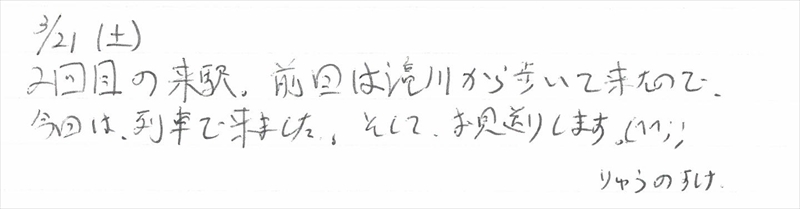 3/21 (土)
2回目の来駅。前回は滝川から歩いて来たので、
今回は、列車で来ました。そして、お見送りします。(^^;;
りゅうのすけ